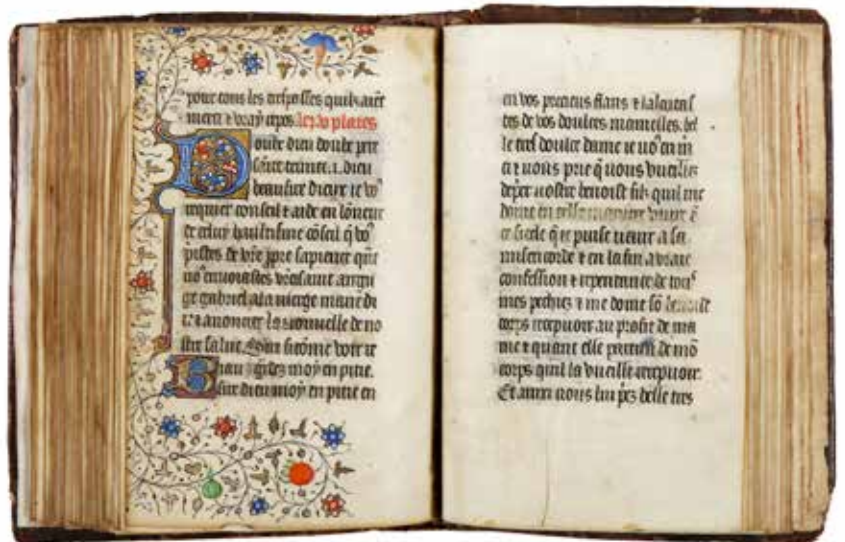 pour tous les
merci & vray repos. les xv
Doulz dieu doulz pere
sainte trinite. i. dieu
beau sire dieux ie vo⁹
requier conseil & aide en lōneur
de celuy hault & fine cōseil q̄ vo⁹
de vr̄e ꝓpre sapience
vo⁹ envoiastes
ge gabriel a la vierge marie
anoncer la nouuelle de no
stre salut. sicōme voir
moy en pitie.
sire dieu moy en pitie en
en vos precieus flans & lalaictas
tes de vos doulces mamelles. bel
le tres doulce dame ie vo⁹ en m
ci & vous prie q̄ vous vueillez
vostre benoist filz quil me
doint en telle maniere viure ē
ce siecle q̄ ie puise venir a sa
misericorde & en la fin a vraie
confession & repentance de tous
mes pechiez & me doint sō benoist
corps recepuoir au profit de ma
me & quant elle partira de mō
corps quil la vueille recepuoir.
Et aussi vous lui belle tres